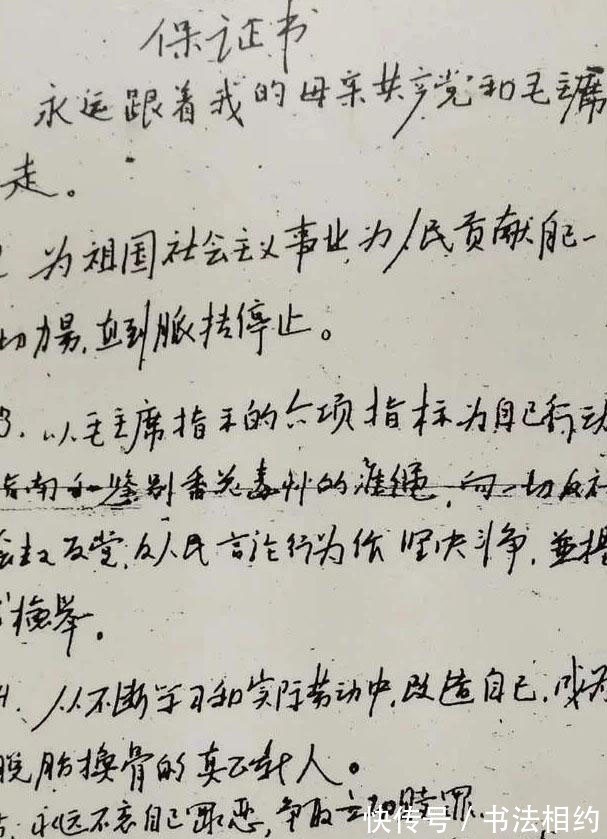 保证书
永远跟着我的母亲共产党和毛主席
走。
为祖国社会主义事业,为人民贡献自己一
切力量,直到脉搏停止。
3. 以毛主席指示的六项指标为自己行动
指南和鉴别香花毒草的准绳,向一切反社
会主义反党,反人民言论行为作坚决斗争,并揭
检举。
4. 从不断学习和实际劳动中,改造自己,成为
脱胎换骨的真正新人。
永远不忘自己罪恶,争取立功赎罪
快传号/书法相约